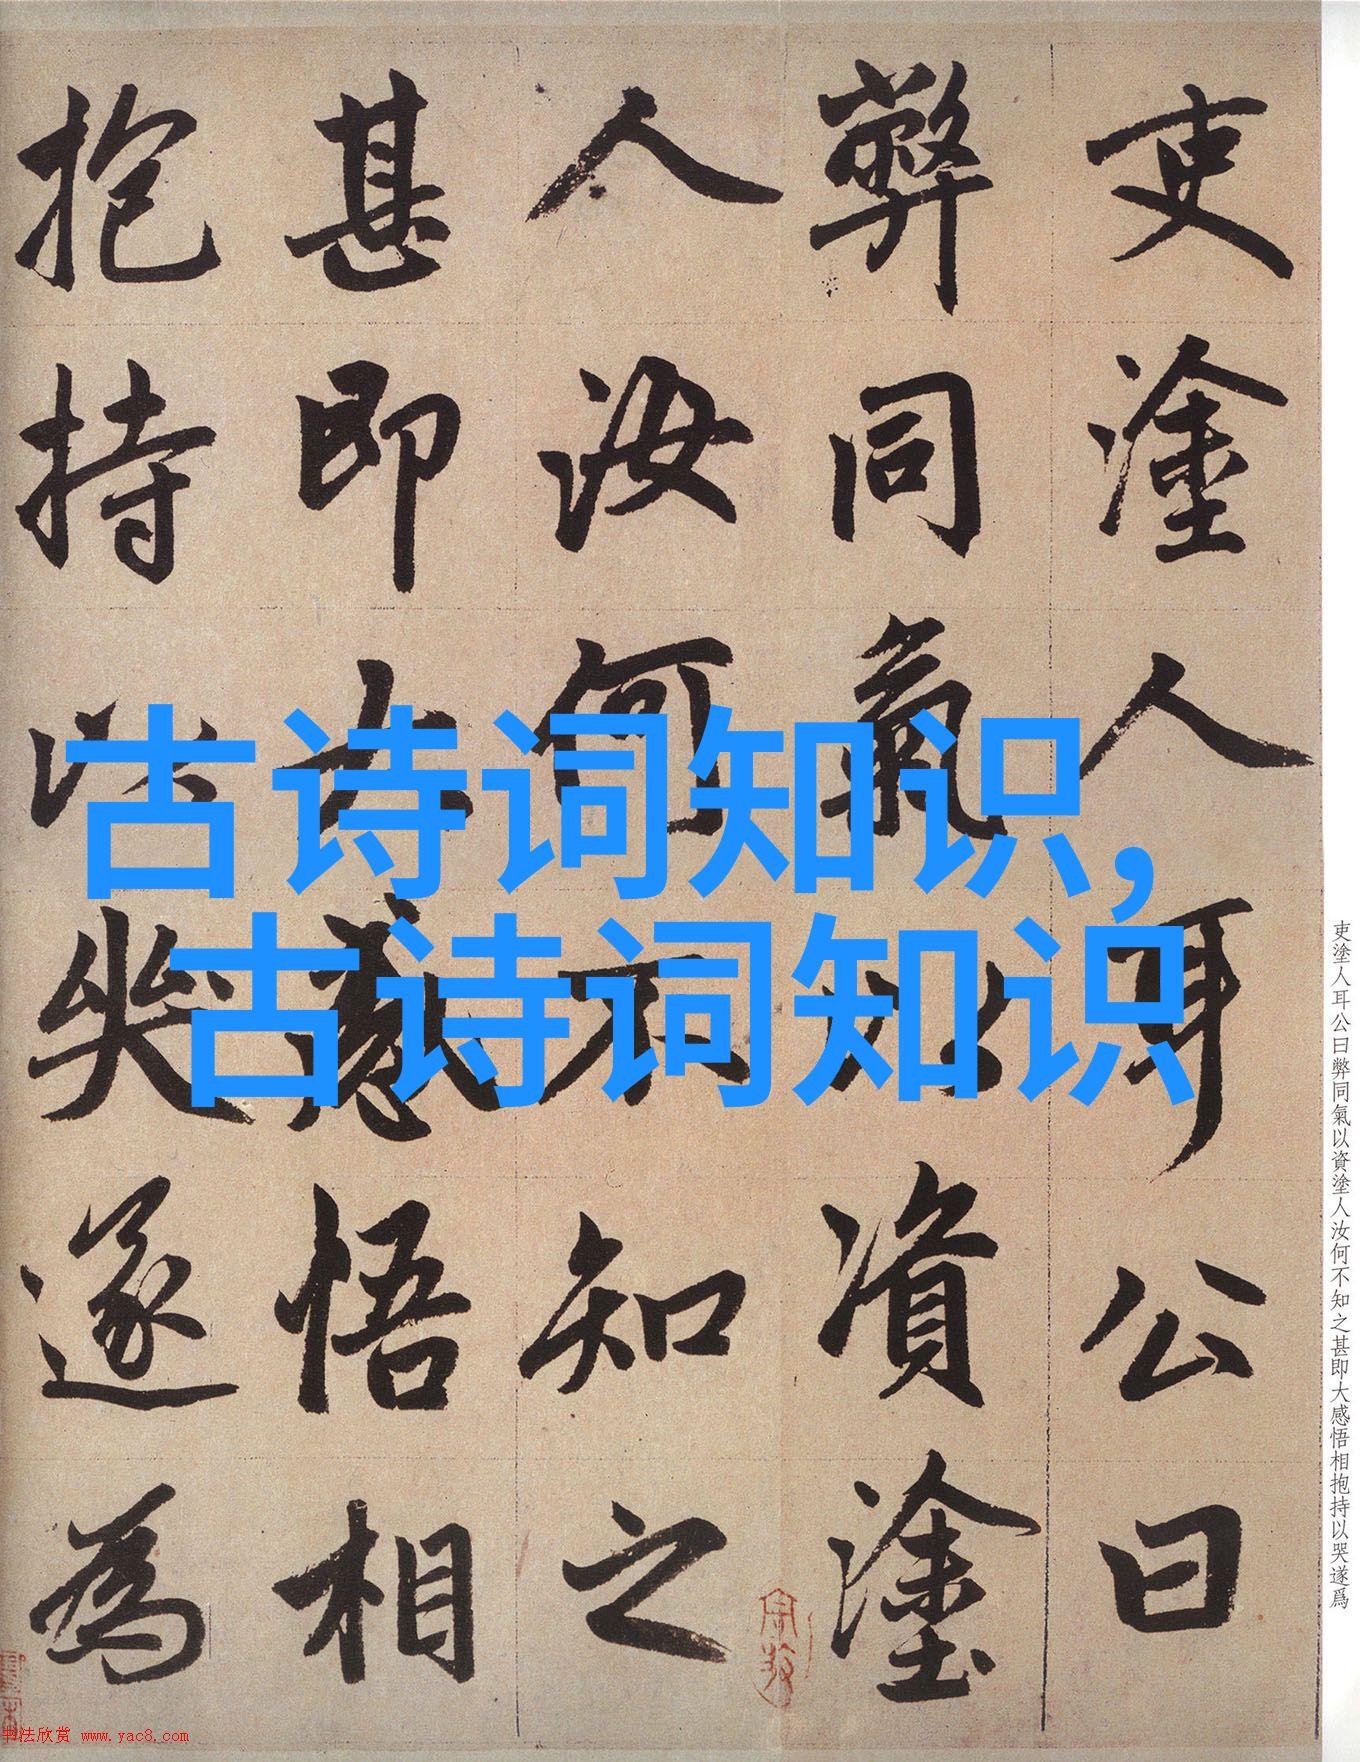 古诗词知识，
古诗词知识
吏塗人耳公曰
弊同氣以資塗
人汝何不知之
甚即大感悟相
抱持以哭遂為
吏塗人耳公曰弊同氣以資塗人汝何不知之甚即大感悟相抱持以哭遂爲
书法欣赏 www.yac8.com